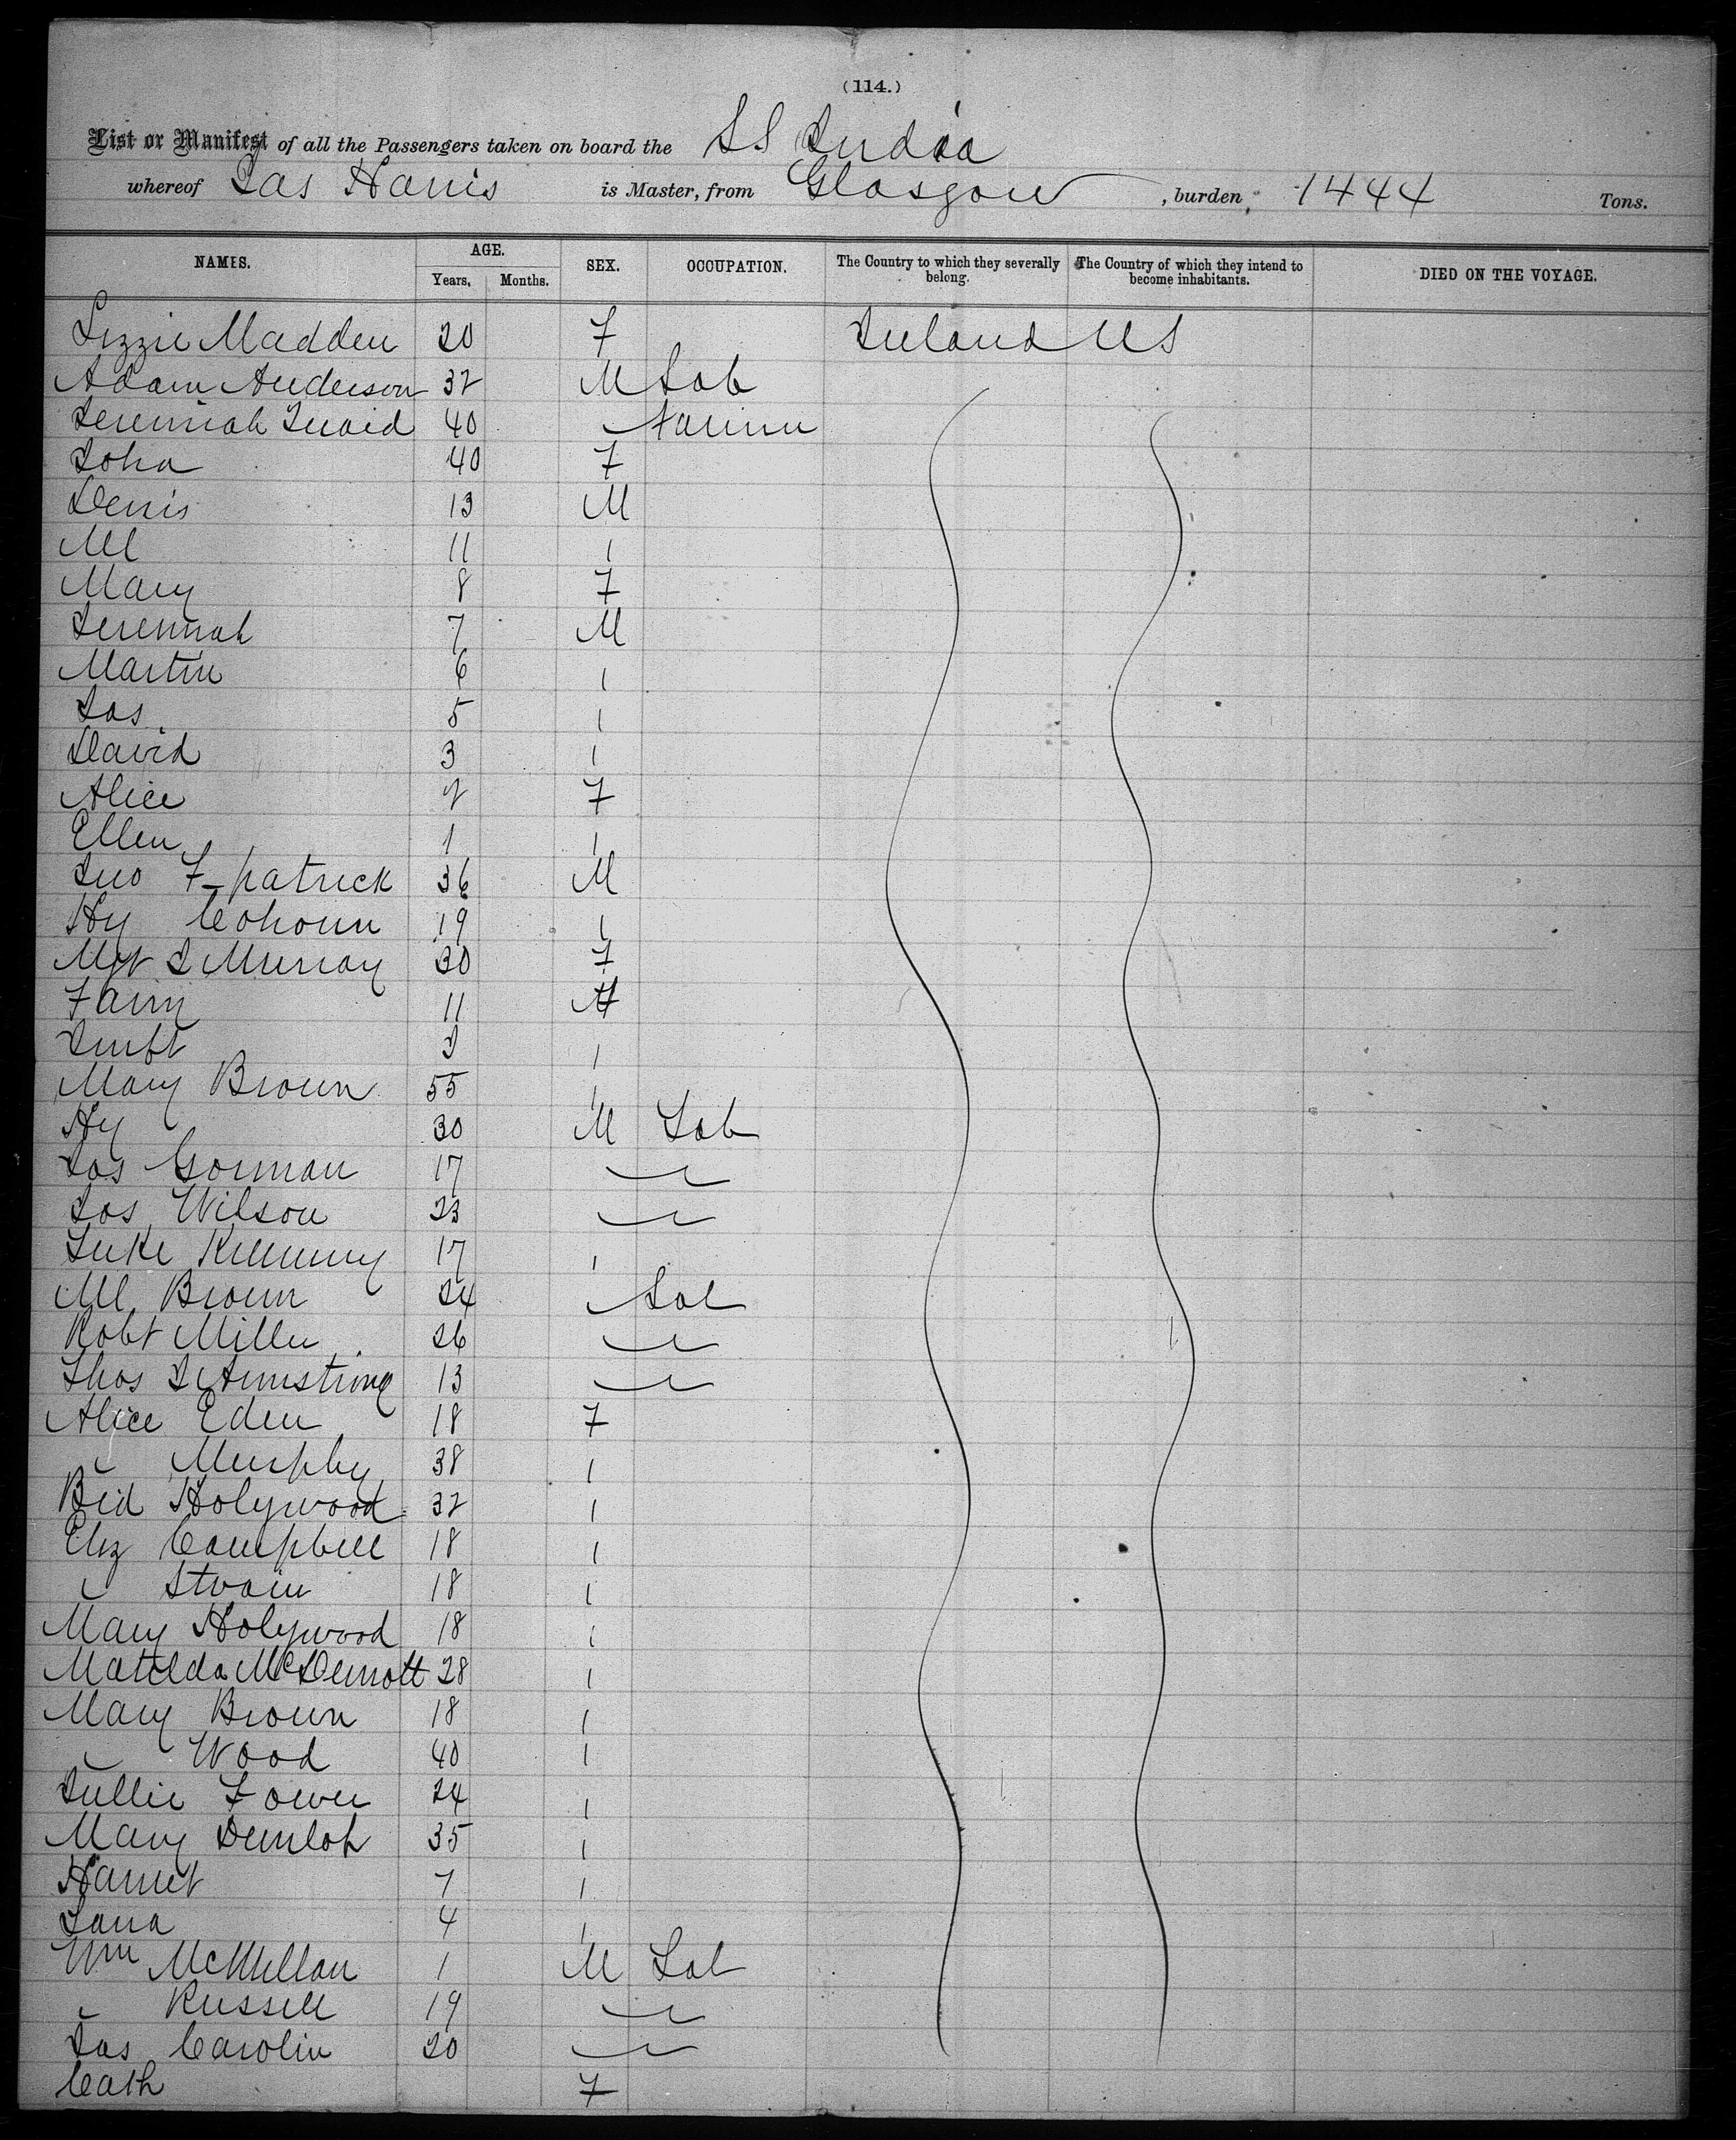 (114.)
List or Manifest of all the Passengers taken on board the SS India
whereof Jas Harris is Master, from Glasgow, burden, 1444 Tons.
NAMES. AGE. SEX. OCCUPATION. The Country to which they severally belong. The Country of which they intend to become inhabitants. DIED ON THE VOYAGE.
Years. Months.
Lizzie Madden 20 F Ireland US
Adam Anderson 32 M Lab
Jeremiah 40 Farmer
Joha 40 F
Denis 13 M
Ml 11 1
Mary 8 F
Jeremiah 7 M
Martin 6 1
Jas 5 1
David 3 1
Alice 2 F
Ellen 1 1
Jno F-patrick 36 M
Hy Cohoun 19 1
Mgt J Murray 30 F
Fanny 11
55 1
Mary Brown
Hy 30 M Lab
Jas Gorman 17
Jas Wilson 23
Luke 17 1
Ml Brown 24 Lab
Robt Miller 26
Thos Armstrong 13
Alice Eden 18 F
" Murphy 38 1
Bid Holywood 32 1
Eliz Campbell 18 1
" Strain 18 1
Mary Holywood 18 1
Matilda McDermott 28 1
Mary Brown 18 1
" Wood 40 1
24 1
Mary Dunlop 35 1
Harriet 7 1
4 1
Wm McMillan 1 M Lab
" Russell 19
Jas Carolin 20
Cath F